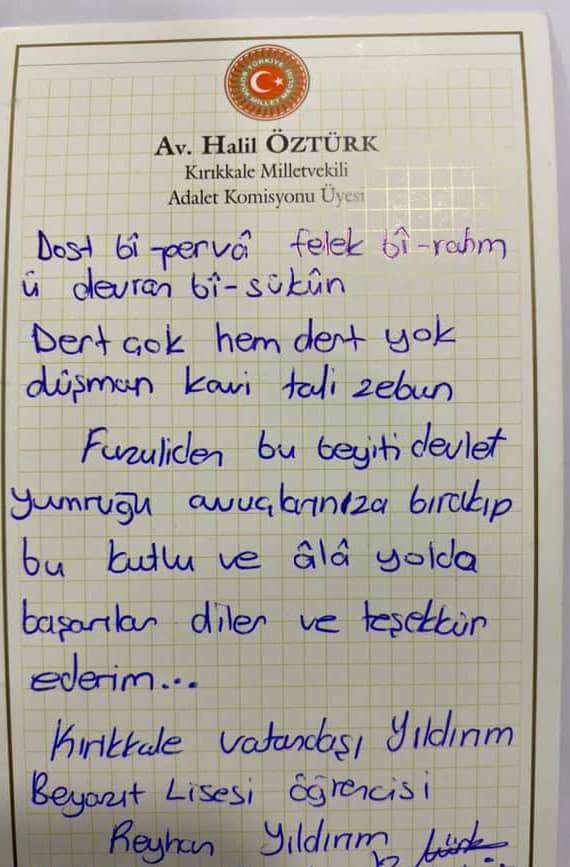 TÜRKİYE BÜYÜK MİLLET MECLİSİ
Av. Halil ÖZTÜRK
Kırıkkale Milletvekili
Adalet Komisyonu Üyesi
Dost bî-pervâ felek bî-rahm
ü devran bî-sükûn
Dert çok hem dert yok
düşman kavi tali zebun
Fuzuliden bu beyiti devlet
yumruğu avuçlarınıza bırakıp
bu kutlu ve âlâ yolda
başarılar diler ve teşekkür
ederim...
Kırıkkale vatandaşı Yıldırım
Beyazıt Lisesi öğrencisi
Reyhan Yıldırım